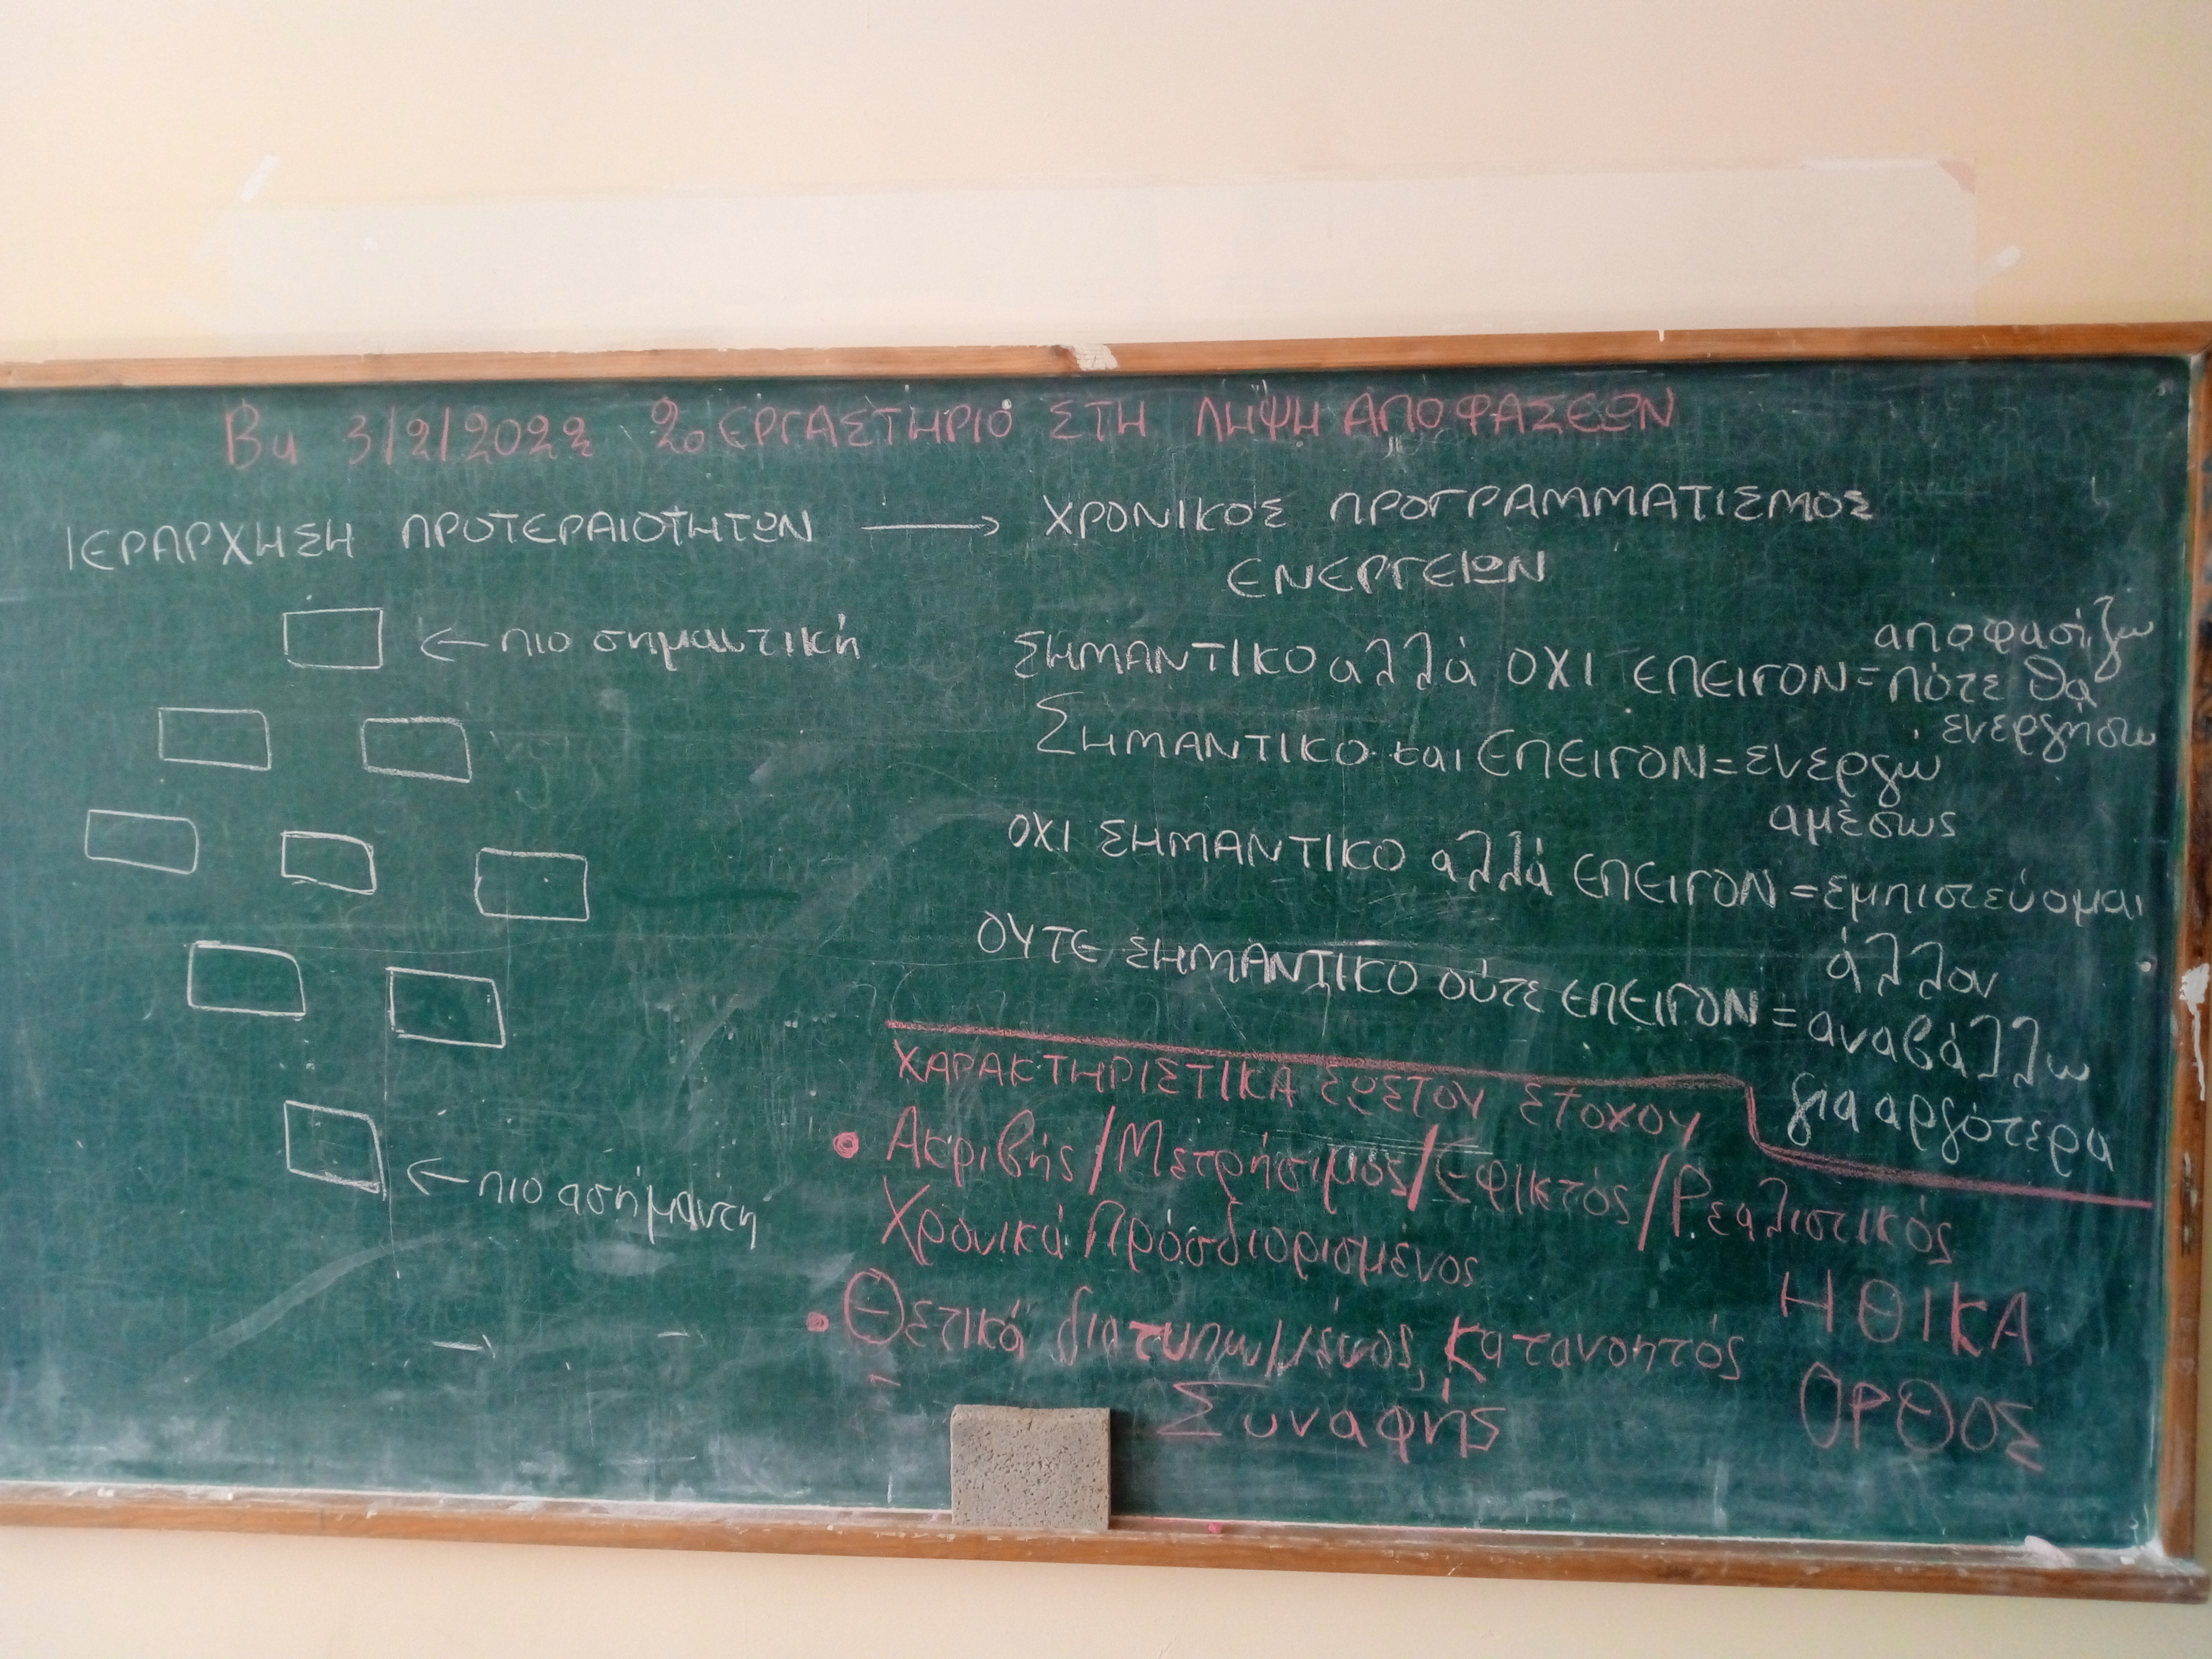 Βu 3/2/2022 2ο ΕΡΓΑΣΤΗΡΙΟ ΣΤΗ ΛΗΨΗ ΑΠΟΦΑΣΕΩΝ
ΙΕΡΑΡΧΗΣΗ ΠΡΟΤΕΡΑΙΟΤΗΤΩΝ → ΧΡΟΝΙΚΟΣ ΠΡΟΓΡΑΜΜΑΤΙΣΜΟΣ
ΕΝΕΡΓΕΙΩΝ
← πιο σημαντική
← πιο ασήμαντη
αποφασίζω
ΣΗΜΑΝΤΙΚΟ αλλά ΟΧΙ ΕΠΕΙΓΟΝ = πότε θα
ενεργήσω
ΣΗΜΑΝΤΙΚΟ και ΕΠΕΙΓΟΝ = ενεργώ
αμέσως
ΟΧΙ ΣΗΜΑΝΤΙΚΟ αλλά ΕΠΕΙΓΟΝ = εμπιστεύομαι
άλλον
ΟΥΤΕ ΣΗΜΑΝΤΙΚΟ ούτε ΕΠΕΙΓΟΝ = αναβάλλω
για αργότερα
ΧΑΡΑΚΤΗΡΙΣΤΙΚΑ ΣΩΣΤΟΥ ΣΤΟΧΟΥ
• Ακριβής/Μετρήσιμος/Εφικτός/Ρεαλιστικός
Χρονικά Προσδιορισμένος
• Θετικά διατυπωμένος, κατανοητός
Συναφής
ΗΘΙΚΑ
ΟΡΘΟΣ